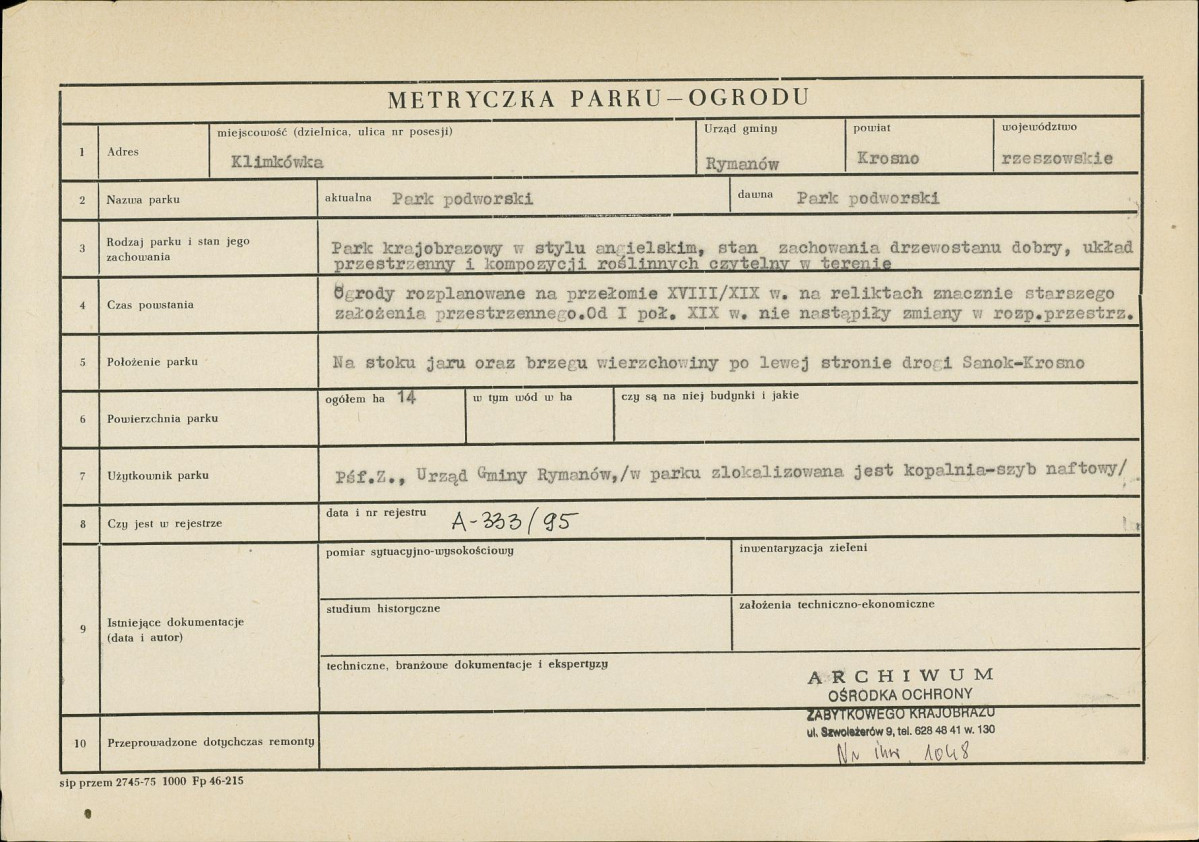 METRYCZKA PARKU—OGRODU
1
Adres
miejscowość (dzielnica, ulica nr posesji)
Klimkówka
Urząd gminy
Rymanów
powiat
Krosno
województwo
rzeszowskie
2
Nazwa parku
aktualna Park podworski
dawna Park podworski
3
Rodzaj parku i stan jego
zachowania
Park krajobrazowy w stylu angielskim, stan zachowania drzewostanu dobry, układ
przestrzenny i kompozycji roślinnych czytelny w terenie
4
Czas powstania
Ogrody rozplanowane na przełomie XVIII/XIX w. na reliktach znacznie starszego
założenia przestrzennego.Od I poł. XIX w. nie nastąpiły zmiany w rozp.przestrz.
5
Położenie parku
Na stoku jaru oraz brzegu wierzchowiny po lewej stronie drogi Sanok-Krosno
6
Powierzchnia parku
ogółem ha 14
w tym wód w ha
czy są na niej budynki i jakie
7
Użytkownik parku
Pśf.Z., Urząd Gminy Rymanów,/w parku zlokalizowana jest kopalnia-szyb naftowy/
8
Czy jest w rejestrze
data i nr rejestru
A-333/95
9
Istniejące dokumentacje
(data i autor)
pomiar sytuacyjno-wysokościowy
inwentaryzacja zieleni
studium historyczne
założenia techniczno-ekonomiczne
techniczne, branżowe dokumentacje i ekspertyzy
ARCHIWUM
OŚRODKA OCHRONY
ZABYTKOWEGO KRAJOBRAZU
ul. Szwoleżerów 9, tel. 628 48 41 w. 130
Nr inw. 1048
10
Przeprowadzone dotychczas remonty
sip przem 2745-75 1000 Fp 46-215